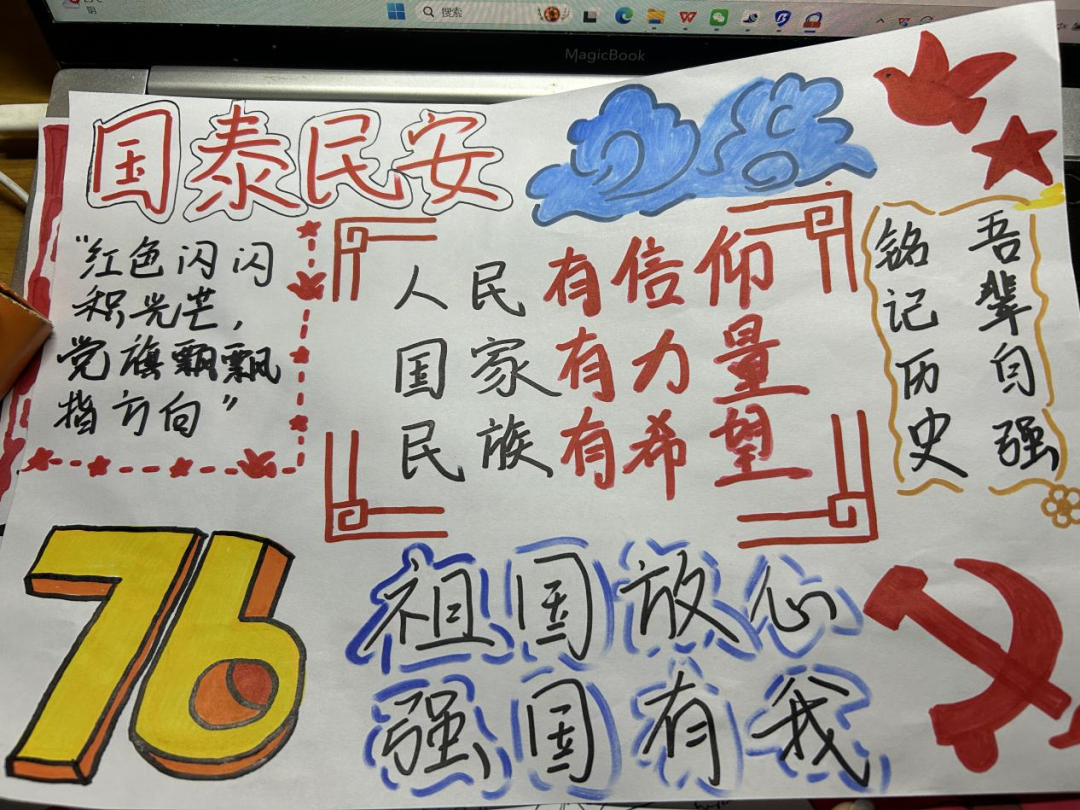 搜索
MagicBook
国泰民安
“红色闪闪
积光芒，
党旗飘飘
指方向”
人民有信仰
国家有力量
民族有希望
吾辈自强
铭记历史
76
祖国放心
强国有我